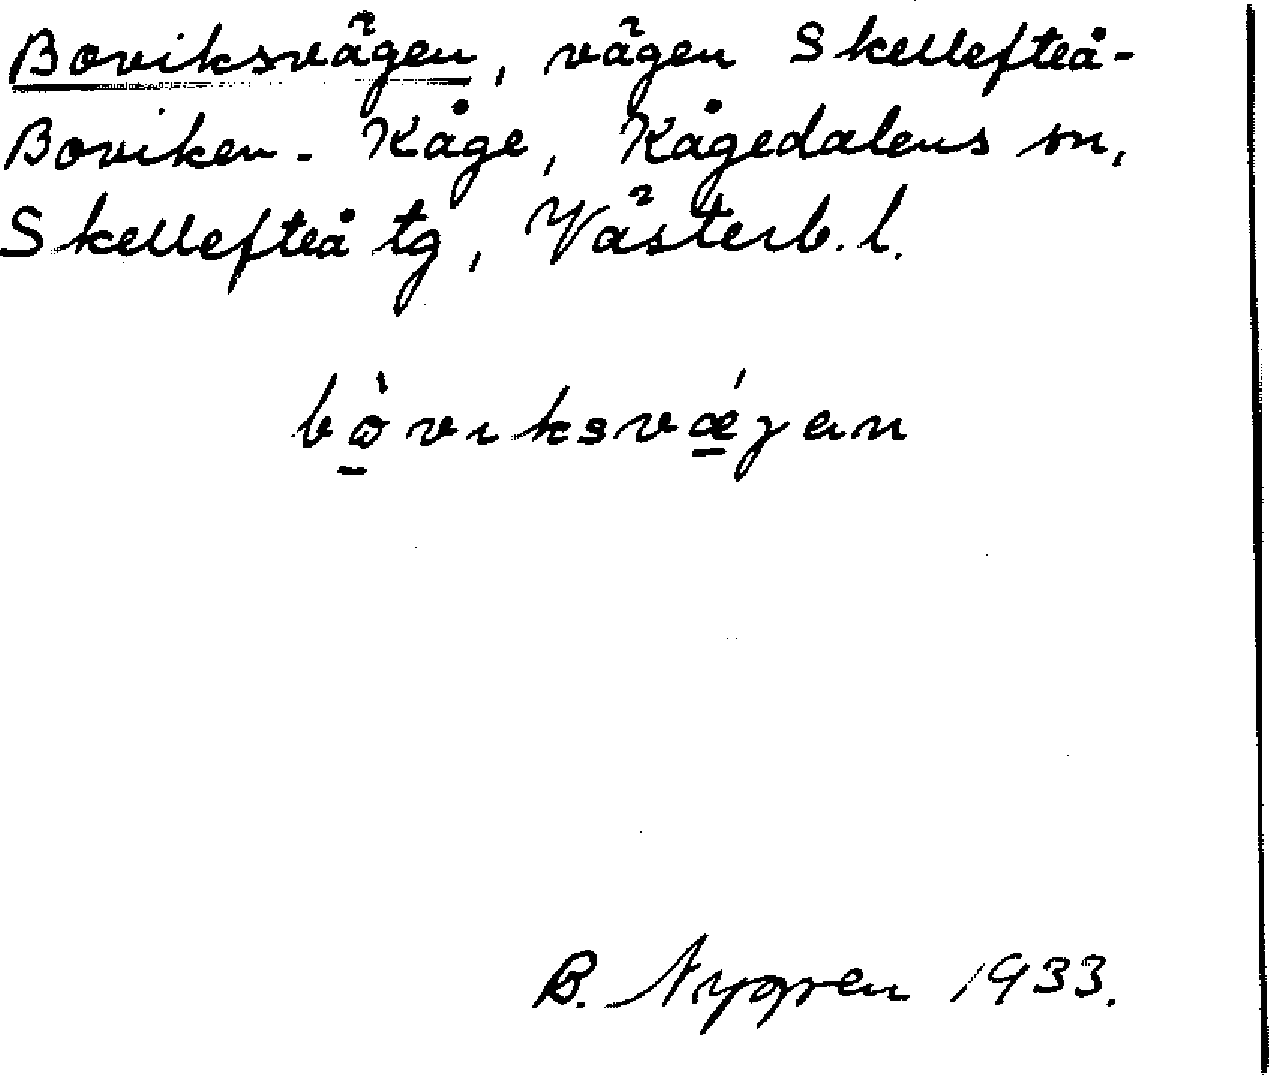 Boviksvägen, vägen Skellefteå-
Boviken - Kåge, Kågedalens sn,
Skellefteå tg, Västerb. l.
bòviksvǽgen
B. Nygren 1933.